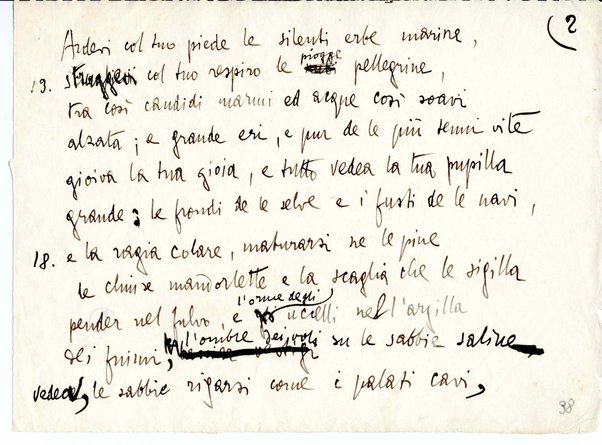 2
Ardevi col tuo piede le silenti erbe marine,
piogge
13. struggevi col tuo respiro le pellegrine,
tra così candidi marmi ed acque così soavi
alzata; e grande eri, e pur de le più tenui vite
gioiva la tua gioia, e tutto vedea la tua pupilla
grande; le frondi de le selve e i fusti de le navi,
18. e la ragia colare, maturarsi ne le pine
le chiuse mandorlette e la scaglia che le sigilla
l'orme degli
pender nel fulvo, e uccelli nell'argilla
l'ombre dei voli
dei fiumi, su le sabbie saline,
vedea, le sabbie rigarsi come i palati cavi,
38